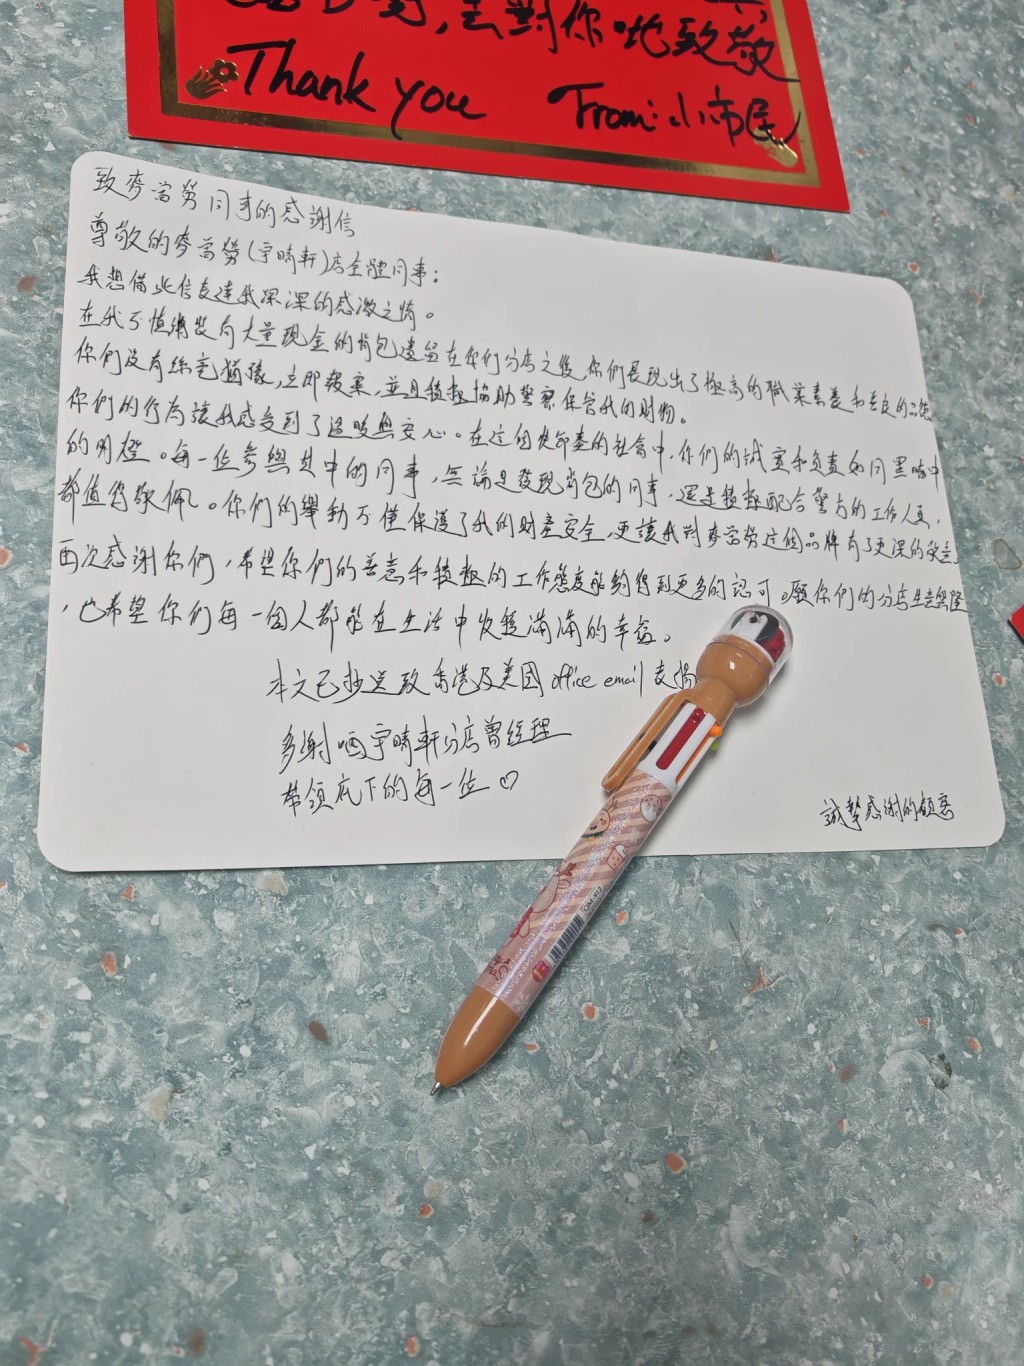 ,去對你哋致敬
Thank you From: 小市民
致麥當勞同事的感謝信
尊敬的麥當勞(宇晴軒)店全體同事:
我想借此信表達我深深的感激之情。
在我不慎將裝有大量現金的背包遺留在你們分店之後,你們展現出了極高的職業素養和善良的品德
你們沒有絲毫猶豫,立即報案,並且積極協助警察保管我的財物。
你們的行為讓我感受到了溫暖與安心。在這個快節奏的社會中,你們的誠實和負責如同黑暗中
的明燈。每一位參與其中的同事,無論是發現背包的同事,還是積極配合警方的工作人員,
都值得敬佩。你們的舉動不僅保護了我的財產安全,更讓我對麥當勞這個品牌有了更深的敬意
再次感謝你們,希望你們的善意和積極的工作態度能夠得到更多的認可。願你們的分店生意興隆
,也希望你們每一個人都能在生活中收穫滿滿的幸福。
本文已抄送致香港及美國office email 表揚
多謝晒宇晴軒分店曾經理
帶領底下的每一位♡
誠摯感謝的顧客
QM-917